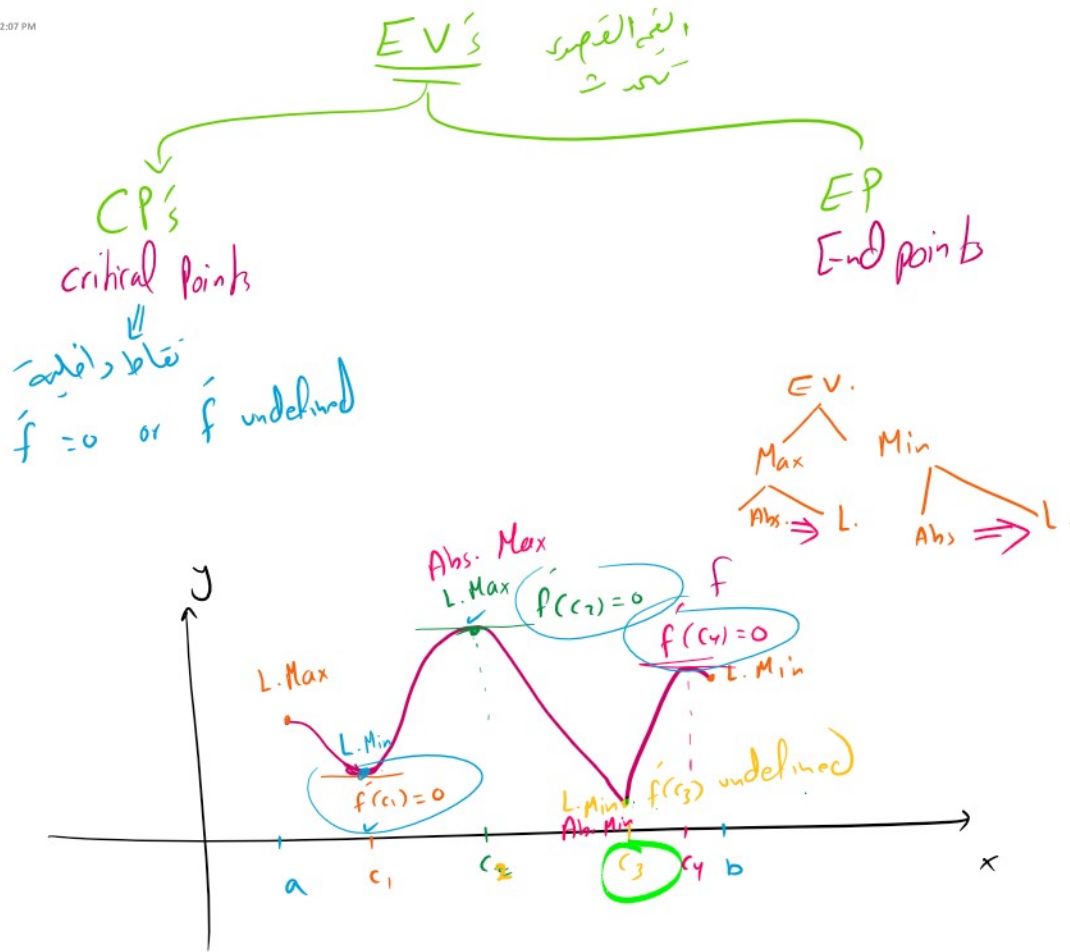 2:07 PM
EV's القيم القصوى
تحدث
CP's
critical Points
نقاط داخلية
f' = 0 or f' undefined
EP
End points
EV.
Max Min
Abs. ⇒ L.
Abs ⇒ L.
y
Abs. Max
L. Max
f'(c2) = 0
f
f'(c4) = 0
L. Min
L. Max
L. Min
f'(c1) = 0
L. Min f'(c3) undefined
Abs. Min
a c1 c2 c3 c4 b x